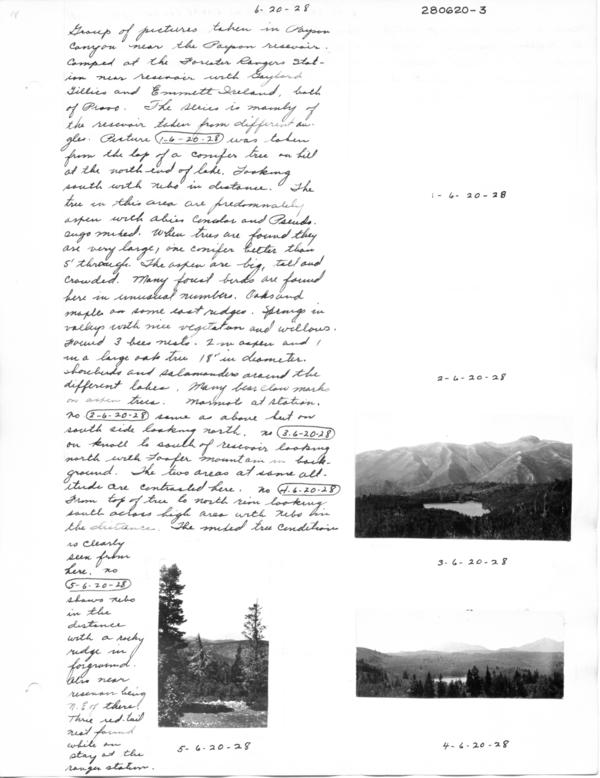 6-20-28
280620-3
Group of pictures taken in Payson
Canyon near the Payson resevoir.
Camped at the Forester Rangers Stat-
ion near resevoir with Gaylord
Gillies and Emmett Ireland, both
of Provo. The series is mainly of
the resevoir taken from different an-
gles. Picture 1-6-20-28 was taken
from the top of a conifer tree on hill
at the north end of lake, Looking
south with Nebo in distance. The
tree in this area are predomnately
aspen with abies concolor and Pseudo-
suga mixed. When trees are found they
are very large, one conifer better than
5' through. The aspen are big, tall and
crowded. Many forest birds are found
here in unusual numbers. Oaks and
maples on some east ridges. Springs in
valleys with nice vegitation and willows.
Found 3 bees nests. 2 in aspen and 1
in a large oak tree 18" in diameter.
Shorebirds and salamanders around the
different lakes. Many bear claw marks
on aspen trees. Marmot at station.
No 2-6-20-28 same as above but on
south side looking north. no 3-6-20-28
on knoll to south of resevoir looking
north with Loafer mountain in back-
ground. The two areas at same alt-
itude are contrasted here. no 4-6-20-28
From top of tree to north rim looking
south across high area with Nebo in
the distance. The mixed tree condition
is clearly
seen from
here. no
5-6-20-28
shows nebo
in the
distance
with a rocky
ridge in
forground.
Also near
resevoir being
N.E. of there.
Three red-tail
nest found
while on
stay at the
ranger station.
1-6-20-28
2-6-20-28
3-6-20-28
4-6-20-28
5-6-20-28